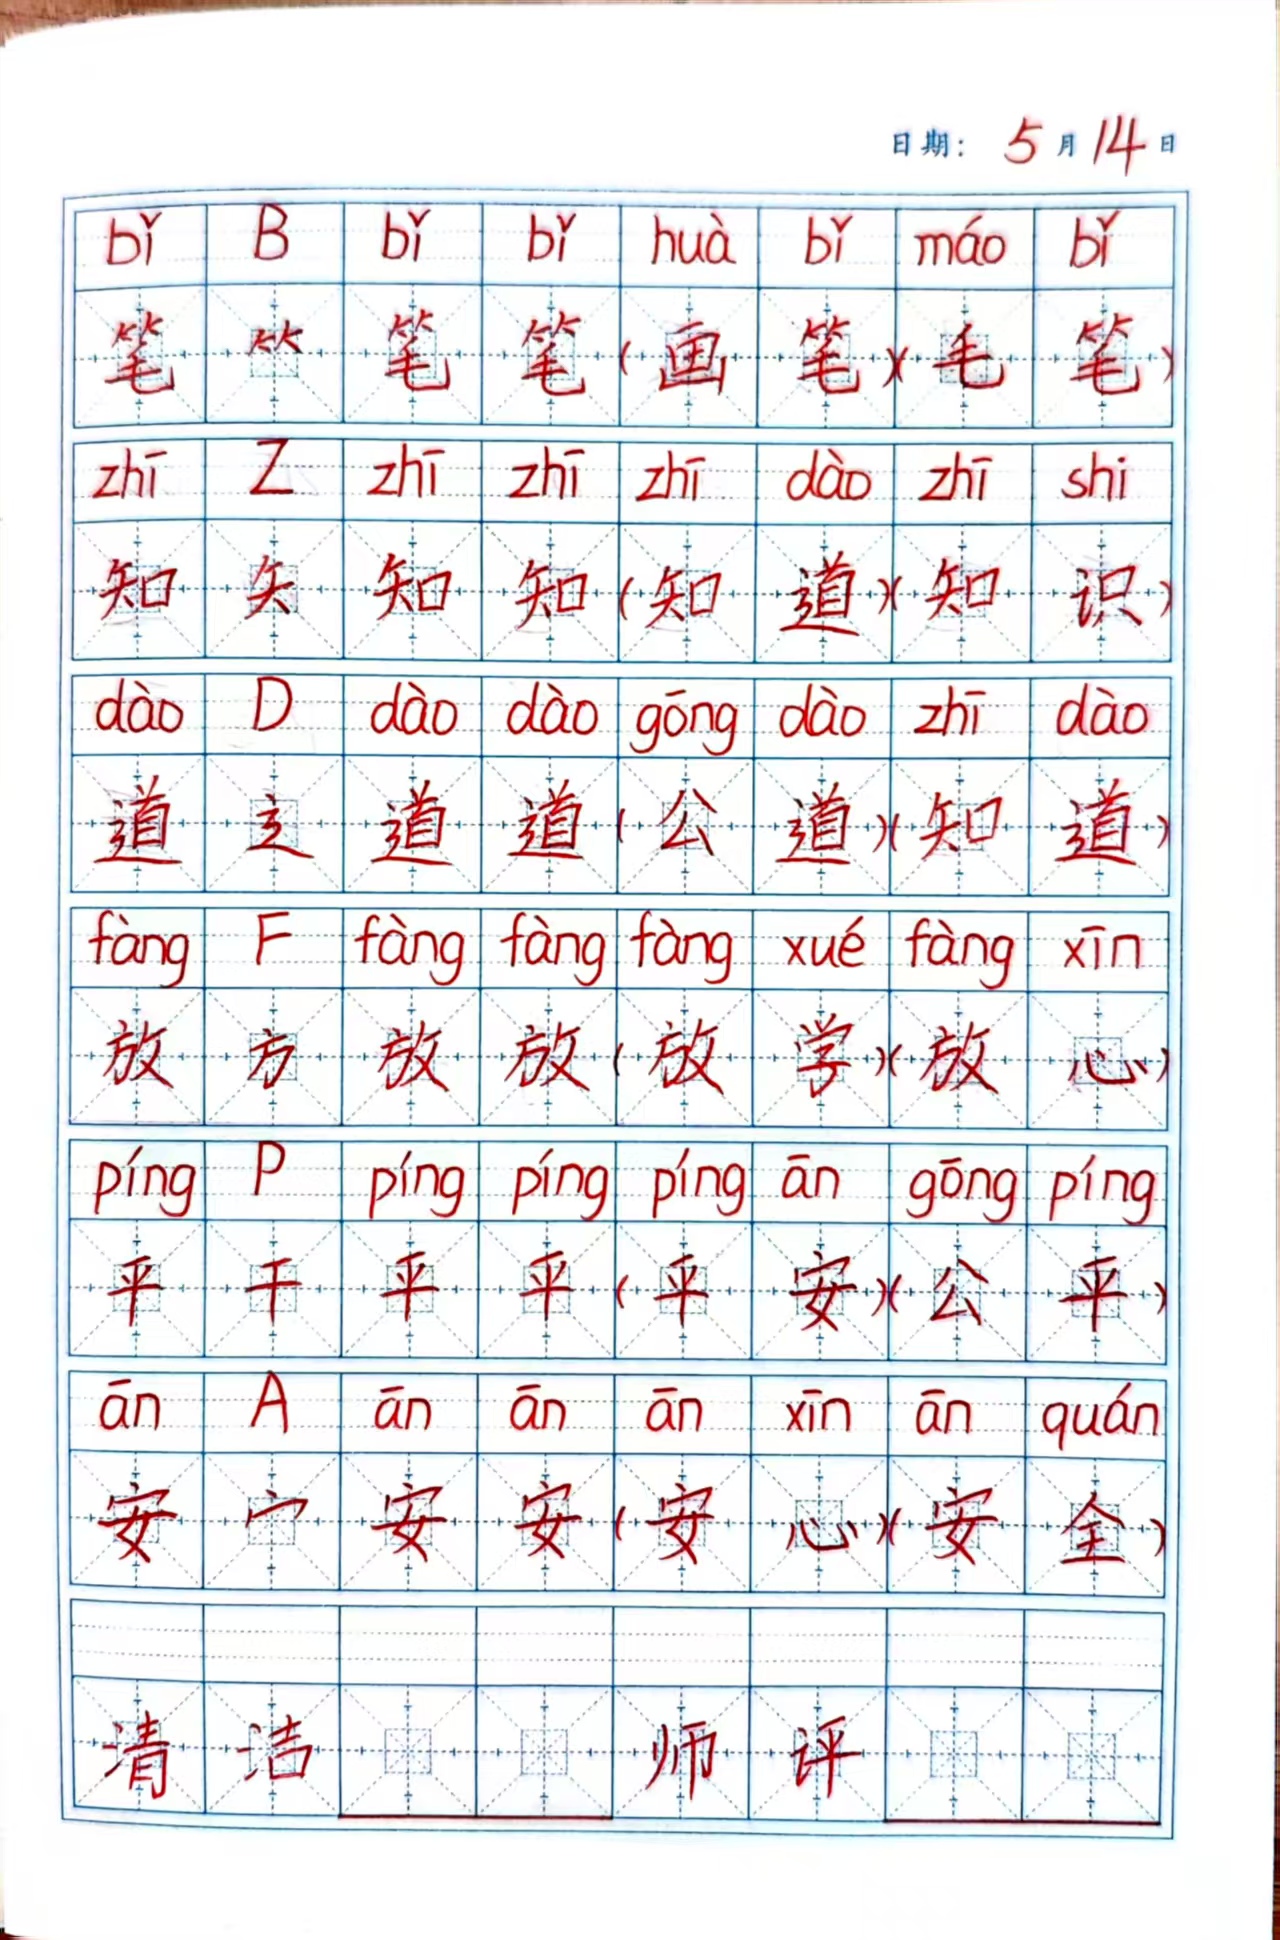 日期: 5月14日
bǐ B bǐ bǐ huà bǐ máo bǐ
笔 ⺮ 笔 笔 (画 笔)(毛 笔)
zhī Z zhī zhī zhī dào zhī shi
知 矢 知 知 (知 道)(知 识)
dào D dào dào gōng dào zhī dào
道 辶 道 道 (公 道)(知 道)
fàng F fàng fàng fàng xué fàng xīn
放 方 放 放 (放 学)(放 心)
píng P píng píng píng ān gōng píng
平 干 平 平 (平 安)(公 平)
ān A ān ān ān xīn ān quán
安 宀 安 安 (安 心)(安 全)
清 洁 师 评